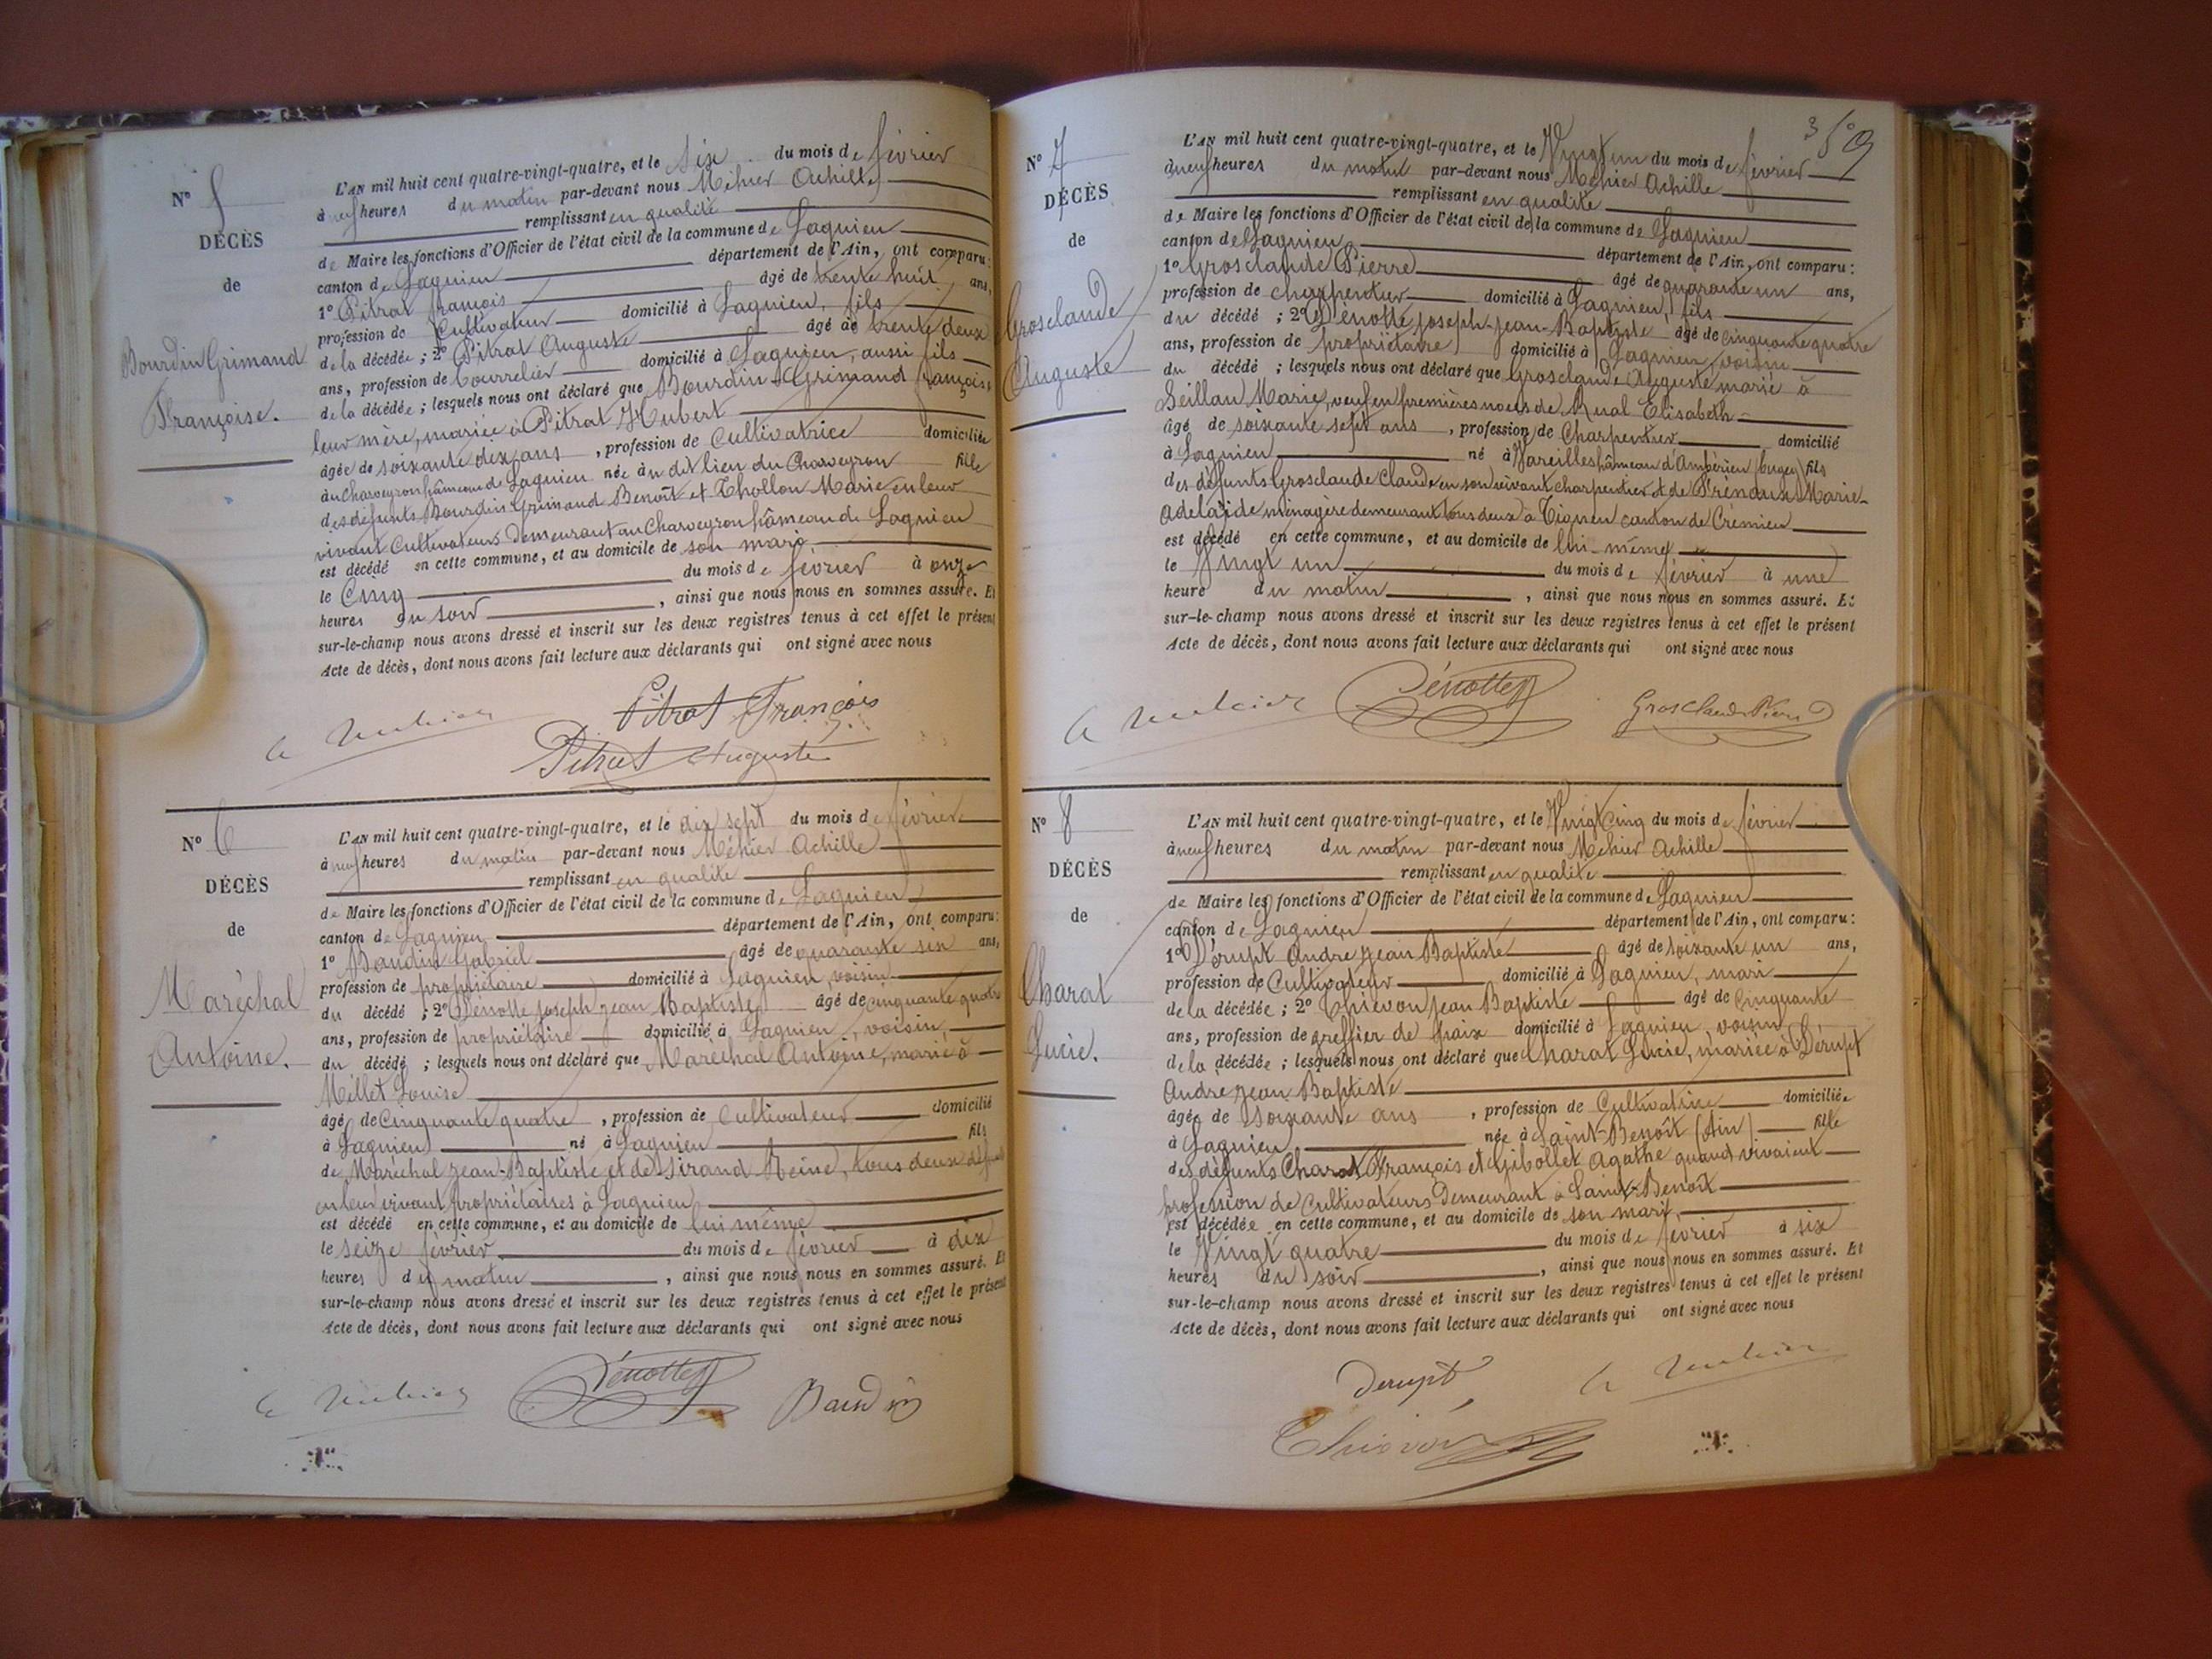 N° 5
DÉCÈS
de
Bourdin Grimand
Françoise.
L'AN mil huit cent quatre-vingt-quatre, et le Six du mois de février
à neuf heures du matin par-devant nous Méhier Achille
remplissant en qualité
de Maire les fonctions d'Officier de l'état civil de la commune de Lagnieu
canton de Lagnieu département de l'Ain, ont comparu:
1° Pitrat françois âgé de trente huit ans,
profession de Cultivateur domicilié à Lagnieu, fils
de la décédée ; 2° Pitrat Auguste âgé de trente deux
ans, profession de bourrelier domicilié à Lagnieu, aussi fils
de la décédée ; lesquels nous ont déclaré que Bourdin-Grimand françoise
leur mère, mariée à Pitrat Hubert
âgée de soixante dix ans , profession de Cultivatrice domiciliée
au Charveyron hâmeau de Lagnieu née au dit lieu du Charveyron fille
des défunts Bourdin Grimand Benoît et Thollon Marie en leur
vivant Cultivateurs demeurant au Charveyron hâmeau de Lagnieu
est décédé en cette commune, et au domicile de son mari
le Cinq du mois de février à onze
heures du soir , ainsi que nous nous en sommes assuré. Et
sur-le-champ nous avons dressé et inscrit sur les deux registres tenus à cet effet le présent
Acte de décès, dont nous avons fait lecture aux déclarants qui ont signé avec nous
Pitrat François
A Méhier
Pitrat Auguste
N° 6
DÉCÈS
de
Maréchal
Antoine.
L'AN mil huit cent quatre-vingt-quatre, et le dix sept du mois de février
à neuf heures du matin par-devant nous Méhier Achille
remplissant en qualité
de Maire les fonctions d'Officier de l'état civil de la commune de Lagnieu
canton de Lagnieu département de l'Ain, ont comparu:
1° Baudin Gabriel âgé de quarante six ans,
profession de propriétaire domicilié à Lagnieu, voisin
du décédé ; 2° Dénotte Joseph Jean Baptiste âgé de cinquante quatre
ans, profession de propriétaire domicilié à Lagnieu, voisin,
du décédé ; lesquels nous ont déclaré que Maréchal Antoine, marié à
Millet Louise
âgé de Cinquante quatre , profession de Cultivateur domicilié
à Lagnieu né à Lagnieu fils
de Maréchal Jean-Baptiste et de Sirand Reine, tous deux défunts
en leur vivant propriétaires à Lagnieu
est décédé en cette commune, et au domicile de lui même
le seize février du mois de février à dix
heures du matin , ainsi que nous nous en sommes assuré. Et
sur-le-champ nous avons dressé et inscrit sur les deux registres tenus à cet effet le présent
Acte de décès, dont nous avons fait lecture aux déclarants qui ont signé avec nous
A Méhier Dénotte Baudin
359
N° 7
DÉCÈS
de
Grosclaude
Auguste
L'AN mil huit cent quatre-vingt-quatre, et le Vingt un du mois de février
à neuf heures du matin par-devant nous Méhier Achille
remplissant en qualité
de Maire les fonctions d'Officier de l'état civil de la commune de Lagnieu
canton de Lagnieu département de l'Ain, ont comparu:
1° Grosclaude Pierre âgé de quarante un ans,
profession de charpentier domicilié à Lagnieu, fils
du décédé ; 2° Dénotte Joseph-Jean-Baptiste âgé de cinquante quatre
ans, profession de propriétaire domicilié à Lagnieu voisin
du décédé ; lesquels nous ont déclaré que Grosclaude Auguste marié à
Seillan Marie, veuf en premières noces de Elisabeth
âgé de soixante sept ans , profession de Charpentier domicilié
à Lagnieu né à Vareilles hâmeau d'Ambérieu (bugey) fils
des défunts Grosclaude Claude en son vivant charpentier et de Marie-
Adelaïde ménagère demeurant tous deux à Tignieu canton de Crémieu
est décédé en cette commune, et au domicile de lui-même
le Vingt un du mois de février à une
heure du matin , ainsi que nous nous en sommes assuré. Et
sur-le-champ nous avons dressé et inscrit sur les deux registres tenus à cet effet le présent
Acte de décès, dont nous avons fait lecture aux déclarants qui ont signé avec nous
A Méhier Dénotte Grosclaude Pierre
N° 8
DÉCÈS
de
Charat
Lucie.
L'AN mil huit cent quatre-vingt-quatre, et le Vingt Cinq du mois de février
à neuf heures du matin par-devant nous Méhier Achille
remplissant en qualité
de Maire les fonctions d'Officier de l'état civil de la commune de Lagnieu
canton de Lagnieu département de l'Ain, ont comparu:
1° Dérupt André Jean Baptiste âgé de soixante un ans,
profession de Cultivateur domicilié à Lagnieu, mari
de la décédée ; 2° Thiévon Jean Baptiste âgé de Cinquante
ans, profession de greffier de paix domicilié à Lagnieu, voisin
de la décédée ; lesquels nous ont déclaré que Charat Lucie, mariée à Dérupt
André Jean Baptiste
âgée de soixante ans , profession de Cultivatrice domiciliée
à Lagnieu née à Saint-Benoît (Ain) fille
des défunts Charat François et Gibollet Agathe quand vivaient
profession de Cultivateurs demeurant à Saint-Benoît
est décédée en cette commune, et au domicile de son mari,
le Vingt quatre du mois de février à six
heures du soir , ainsi que nous nous en sommes assuré. Et
sur-le-champ nous avons dressé et inscrit sur les deux registres tenus à cet effet le présent
Acte de décès, dont nous avons fait lecture aux déclarants qui ont signé avec nous
Derupt A Méhier
Thiévon